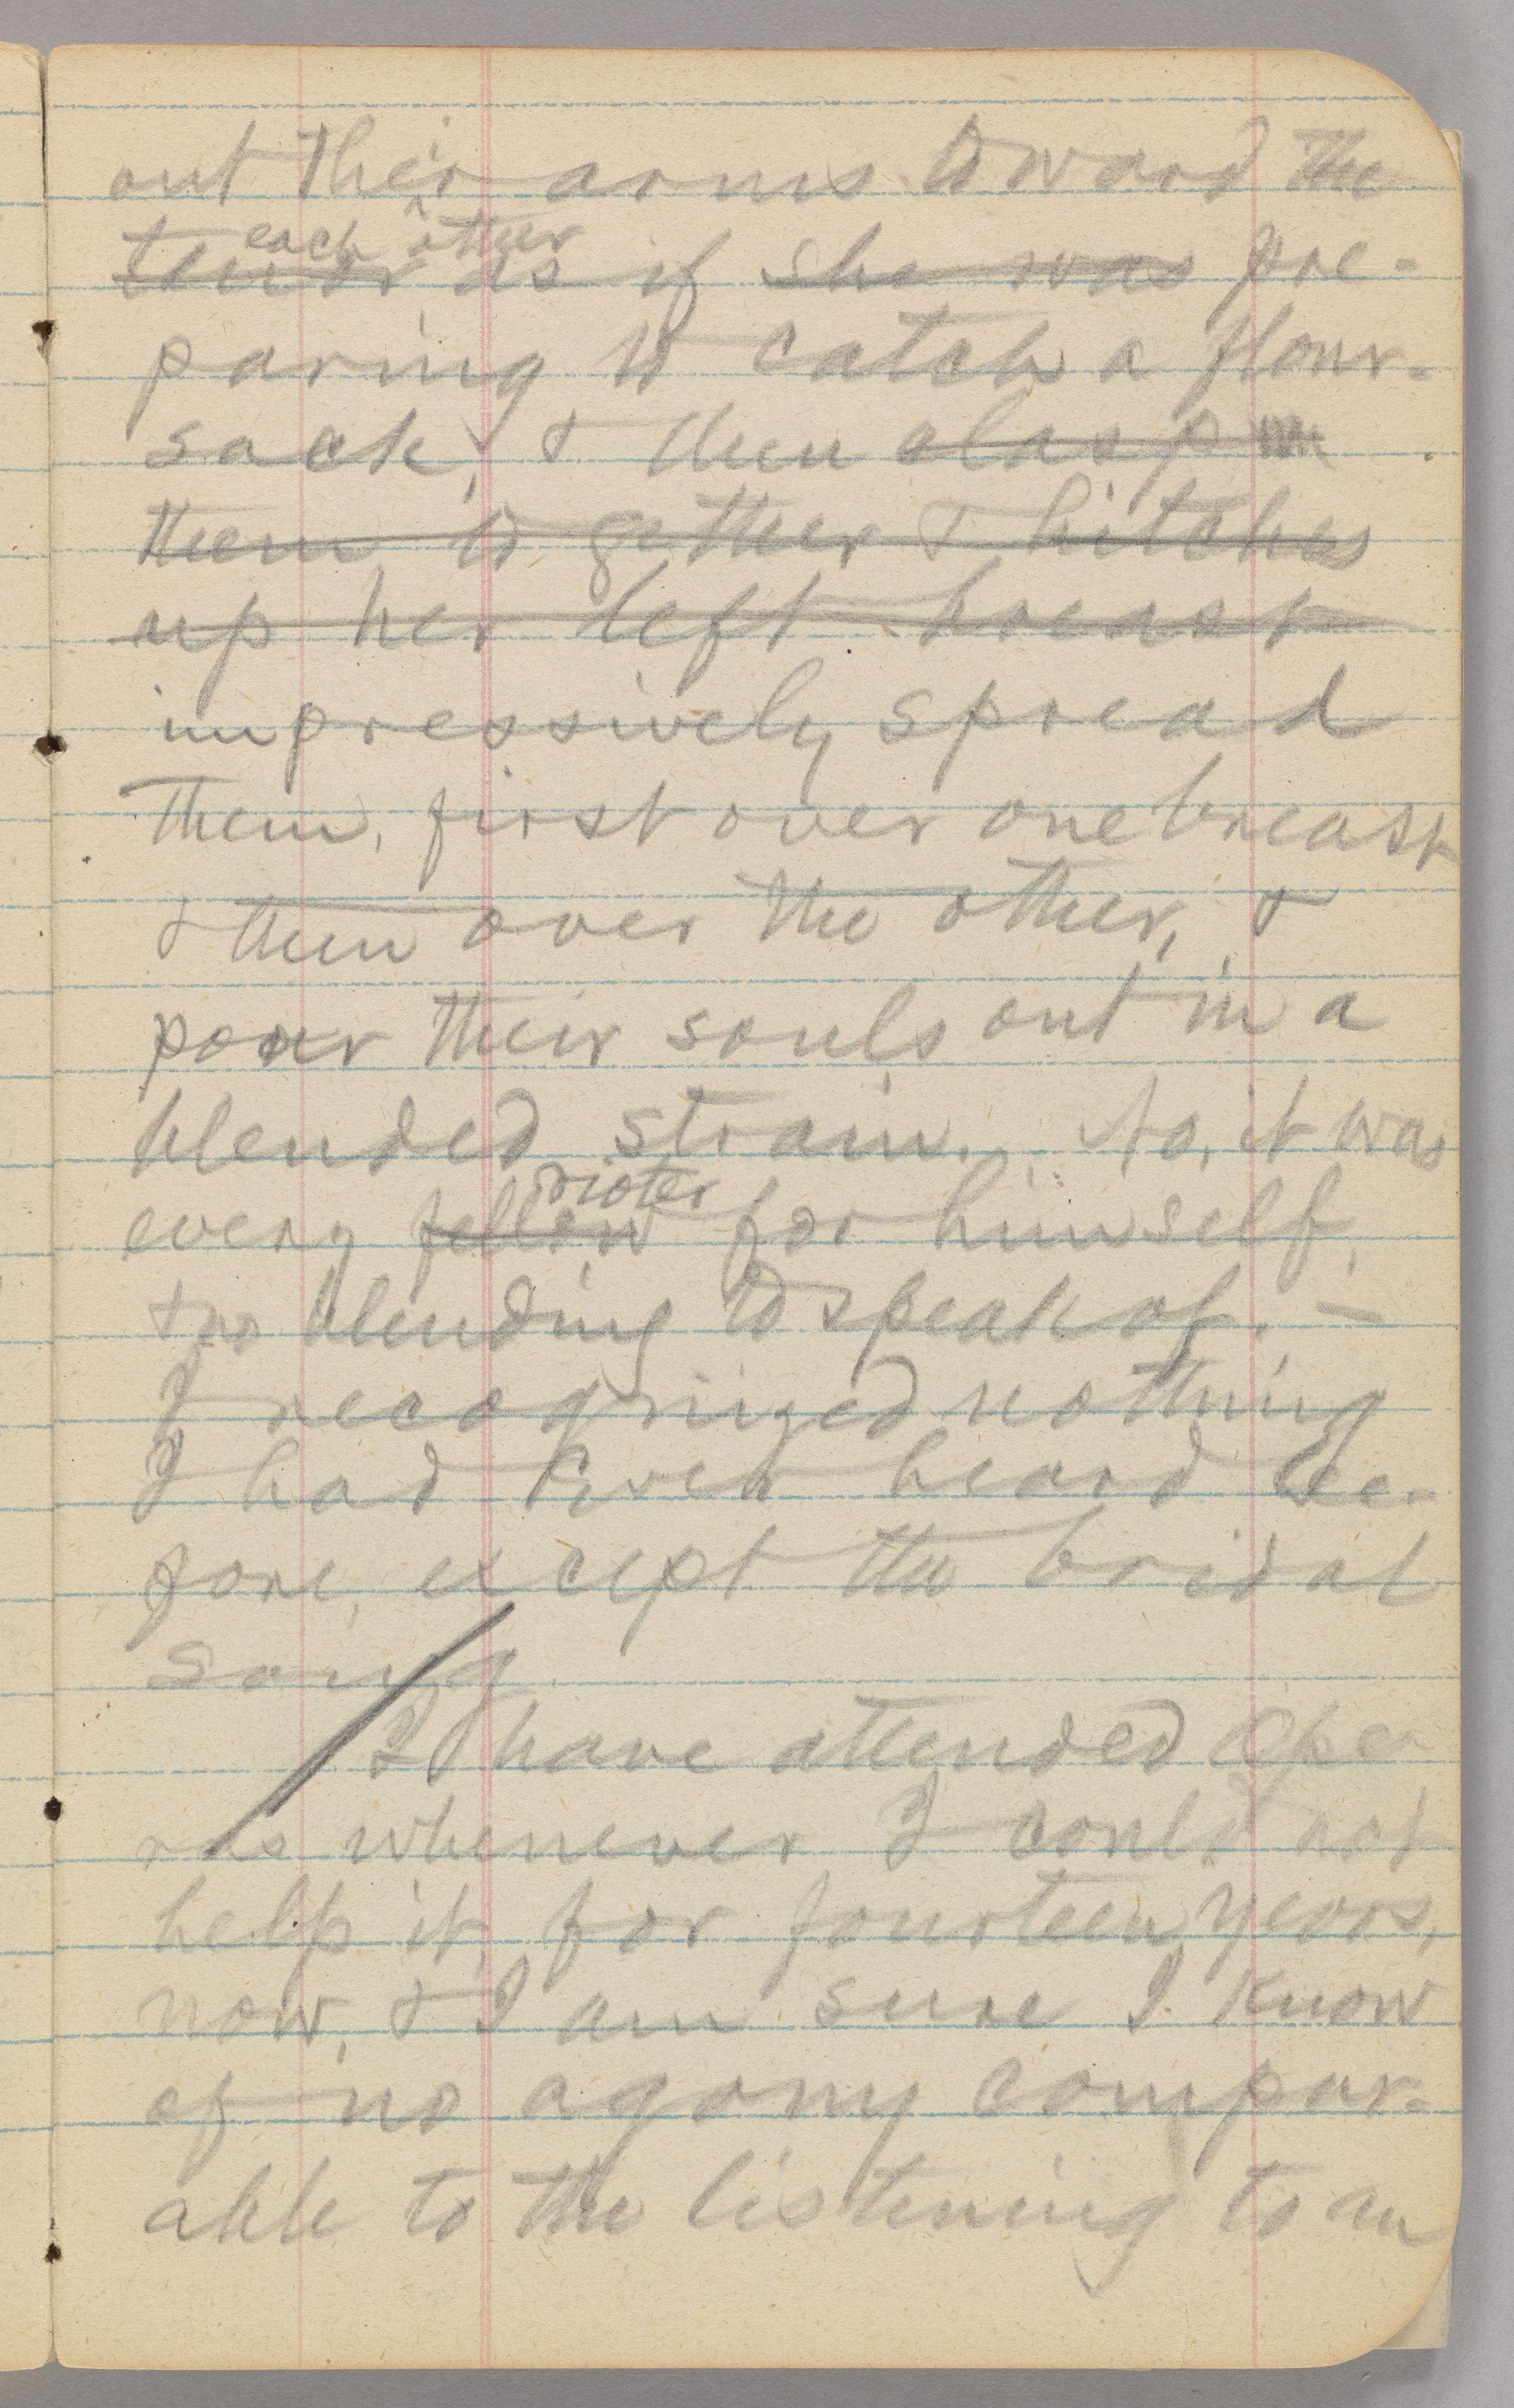 out their arms toward the
each other
tenor as if she was pre-
paring to catch a flour-
sack, & then clasp
them together & hitches
up her left breast
impressively spread
them, first over one breast
& then over the other, &
pour their souls out in a
blended strain. No, it was
rioter
every fellow for himself,
& no blending to speak of. —
I recognized nothing
I had ever heard be-
fore, except the bridal
song.
I have attended ope-
ras whenever I could not
help it, for fourteen years,
now, & I am sure I know
of no agony compar-
able to the listening to an